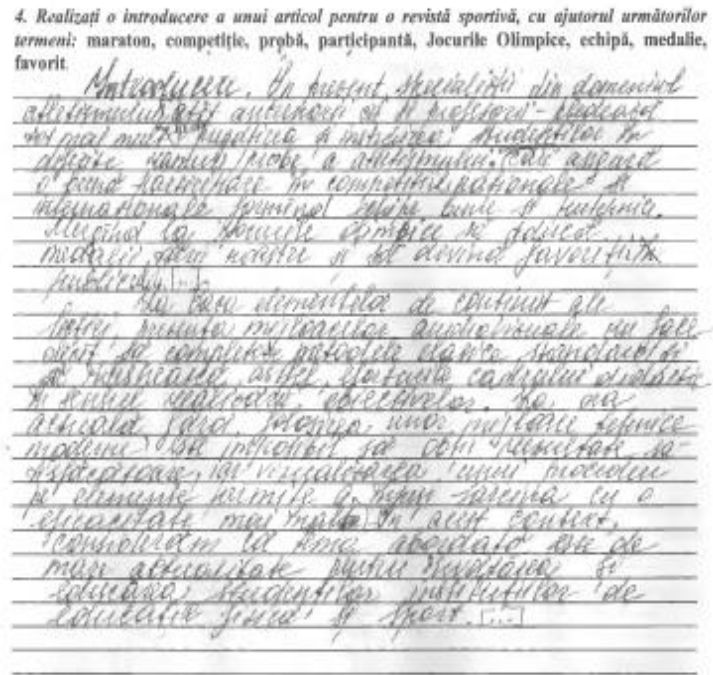 4. Realizați o introducere a unui articol pentru o revistă sportivă, cu ajutorul următorilor
termeni: maraton, competiție, probă, participantă, Jocurile Olimpice, echipă, medalie,
favorit.
Introducere. În prezent, specialiștii din domeniul
atletismului, atît antrenorii cît și profesorii -
tot mai mult pregătirea și instruirea studenților în
diferite ramuri/probe a atletismului. Care asigură
o bună în competițiile naționale și
internaționale formînd echipe bune și puternice.
la jocurile olimpice și aducă
medalii țării noastre și să devină favoriții
publicului. [...]
La baza elementelor de conținut ale
lecției prezența mijloacelor audiovizuale nu face
decît să completeze metodele clasice standard și
să astfel eforturile cadrului didactic
în sensul realizării obiectivelor. La ora
actuală fără folosirea unor mijloace tehnice
moderne este imposibil să obții rezultate sa-
tisfăcătoare, iar vizualizarea unui procedeu
pe elemente permite a sarcina cu o
eficacitate mai mare. În acest context,
considerăm că tema abordată este de
mare actualitate pentru și
educarea studenților instituțiilor de
educație fizică și sport. [...]